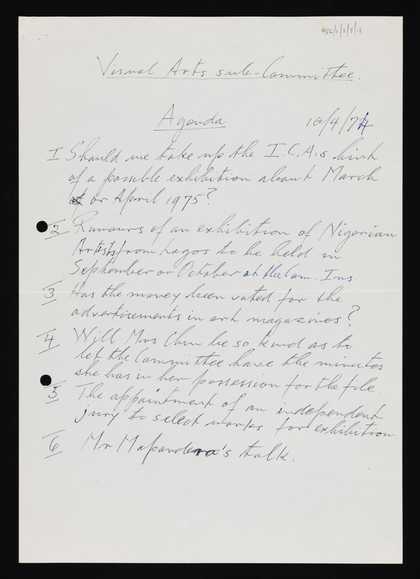 Visual Arts sub-Committee.
Agenda 10/4/74
I Should we take up the I.C.A.s hint
of a possible exhibition about March
or April 1975?
2 Rumours of an exhibition of Nigerian
Artists from Lagos to be held in
September or October at the Com. Ins
3 Has the money been voted for the
advertisements in art magazines?
4 Will Mrs be so kind as to
let the Committee have the minutes
she has in her possession for the file
5 The appointment of an independent
jury to select works for exhibition
6 Mr 's talk.